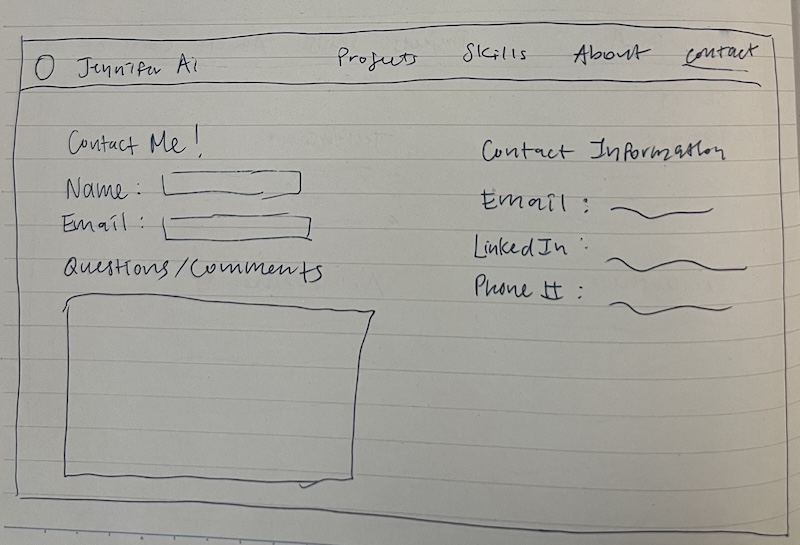 Jennifer Ai Projects Skills About Contact
Contact Me!
Name:
Email:
Questions/Comments
Contact Information
Email:
LinkedIn:
Phone #: